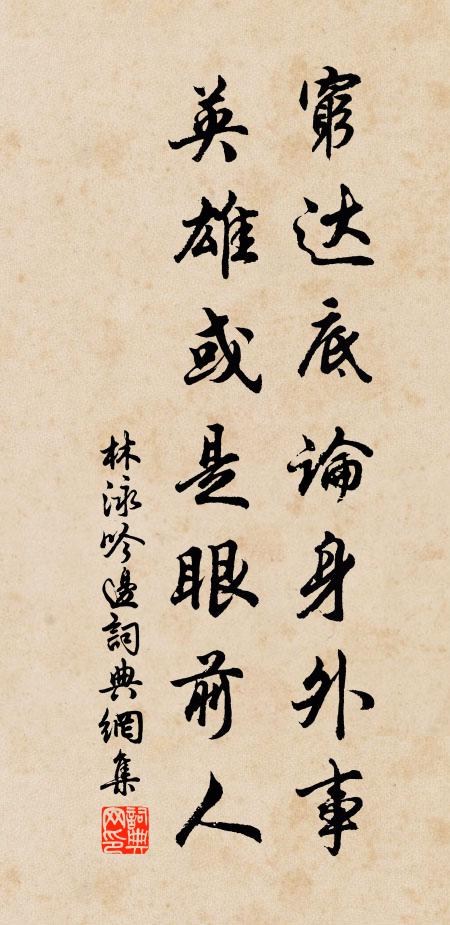 窮达底論身外事
英雄或是眼前人
林泳吟邊詞典網集
詞典网印